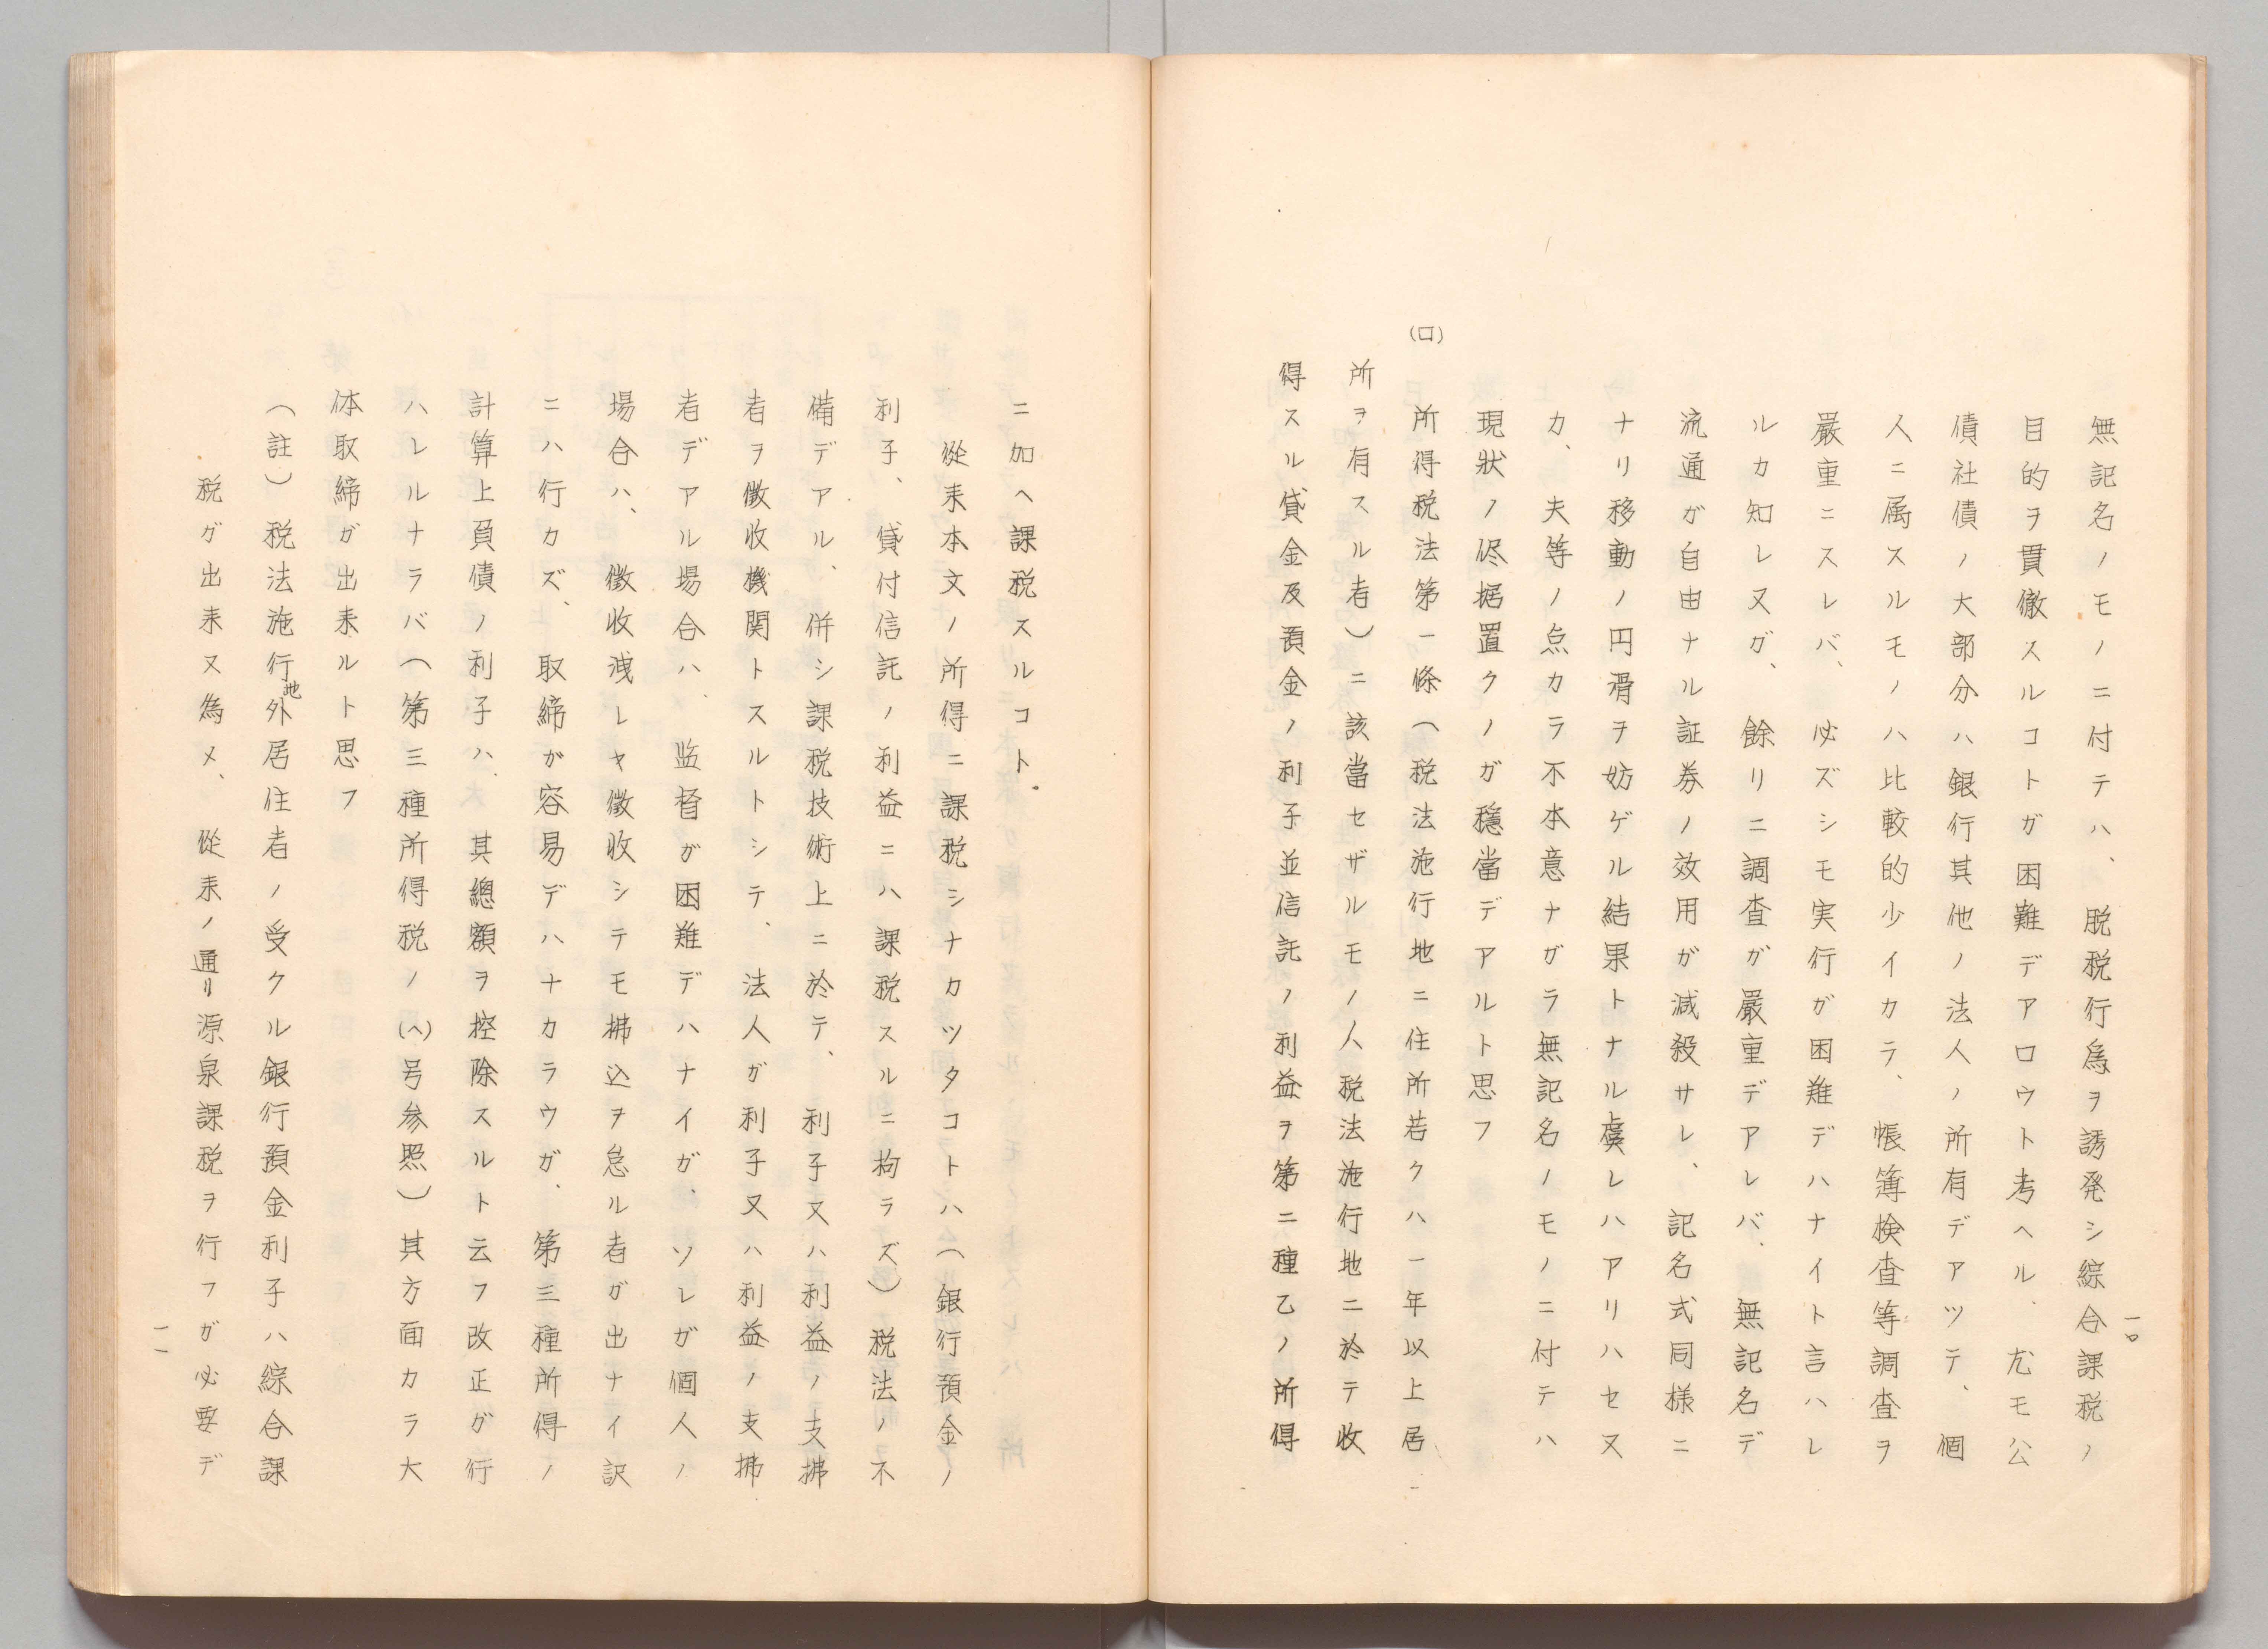 一〇
無記名ノモノニ付テハ、脱税行為ヲ誘発シ綜合課税ノ
目的ヲ貫徹スルコトガ困難デアロウト考ヘル、尤モ公
債社債ノ大部分ハ銀行其他ノ法人ノ所有デアツテ、個
人ニ属スルモノハ比較的少イカラ、帳簿検査等調査ヲ
嚴重ニスレバ、必ズシモ実行ガ困難デハナイト言ハレ
ルカ知レヌガ、餘リニ調査ガ嚴重デアレバ、無記名デ
流通ガ自由ナル証券ノ效用ガ減殺サレ、記名式同様ニ
ナリ移動ノ円滑ヲ妨ゲル結果トナル虞レハアリハセヌ
カ、夫等ノ点カラ不本意ナガラ無記名ノモノニ付テハ
現狀ノ侭据置クノガ穩當デアルト思フ
(ロ)所得税法第一條(税法施行地ニ住所若クハ一年以上居
所ヲ有スル者)ニ該當セザルモノノ人税法施行地ニ於テ收
得スル貸金及預金ノ利子並信託ノ利益ヲ第二種乙ノ所得
ニ加ヘ課税スルコト。
從耒本文ノ所得ニ課税シナカツタコトハ(銀行預金ノ
利子、貸付信託ノ利益ニハ課税スルニ拘ラズ)税法ノ不
備デアル、併シ課税技術上ニ於テ、利子又ハ利益ノ支拂
者ヲ徴收機関トスルトシテ、法人ガ利子又ハ利益ノ支拂
者デアル場合ハ、監督ガ困難デハナイガ、ソレガ個人ノ
場合ハ、徴收洩レヤ徴收シテモ拂込ヲ怠ル者ガ出ナイ訳
ニハ行カズ、取締ガ容易デハナカラウガ、第三種所得ノ
計算上負債ノ利子ハ、其總額ヲ控除スルト云フ改正ガ行
ハレルナラバ(第三種所得税ノ(ヘ)号参照)其方面カラ大
体取締ガ出耒ルト思フ
(註)税法施行地外居住者ノ受クル銀行預金利子ハ綜合課
税ガ出耒ヌ為メ、從耒ノ通リ源泉課税ヲ行フガ必要デ
一一